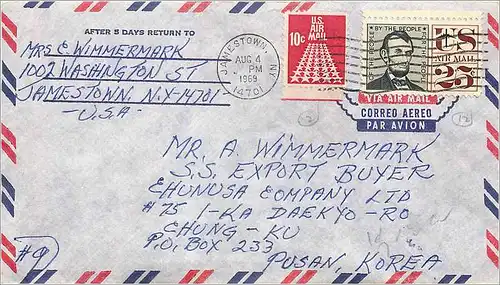 AFTER 5 DAYS RETURN TO
MRS E. WIMMERMARK
1002 WASHINGTON ST
JAMESTOWN. N.Y-14701
-U.S.A-
JAMESTOWN, NY
AUG 4
PM
1969
14701
U.S.
AIR
MAIL
10c
OF THE PEOPLE
BY THE PEOPLE
US
AIR MAIL
25c
VIA AIR MAIL
CORREO AEREO
PAR AVION
MR. A. WIMMERMARK
S.S. EXPORT BUYER
EHUNUSA COMPANY LTD
#75 1-KA DAEKYO-RO
CHUNG-KU
P.O. BOX 233
PUSAN, KOREA
#9
12